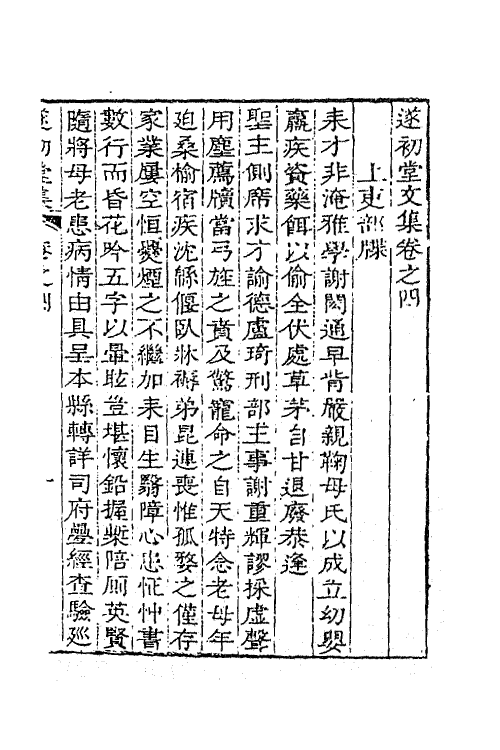 遂初堂文集卷之四
上吏部牒
耒才非淹雅學謝閎通早背嚴親鞠母氏以成立幼嬰
羸疾資藥餌以偷全伏處草茅自甘退廢恭逢
聖主側席求才諭德盧琦刑部主事謝重輝謬採虛聲
用塵薦牘當弓旌之賁及驚寵命之自天特念老母年
迫桑榆宿疾沈緜偃臥牀褥弟昆連喪惟孤嫠之僅存
家業屢空恒㸑煙之不繼加耒目生翳障心患怔忡書
數行而昏花吟五字以暈眩豈堪懷鉛握槧陪厠英賢
隨將母老患病情由具呈本縣轉詳司府疊經查驗廵
遂初堂集 卷之四 一